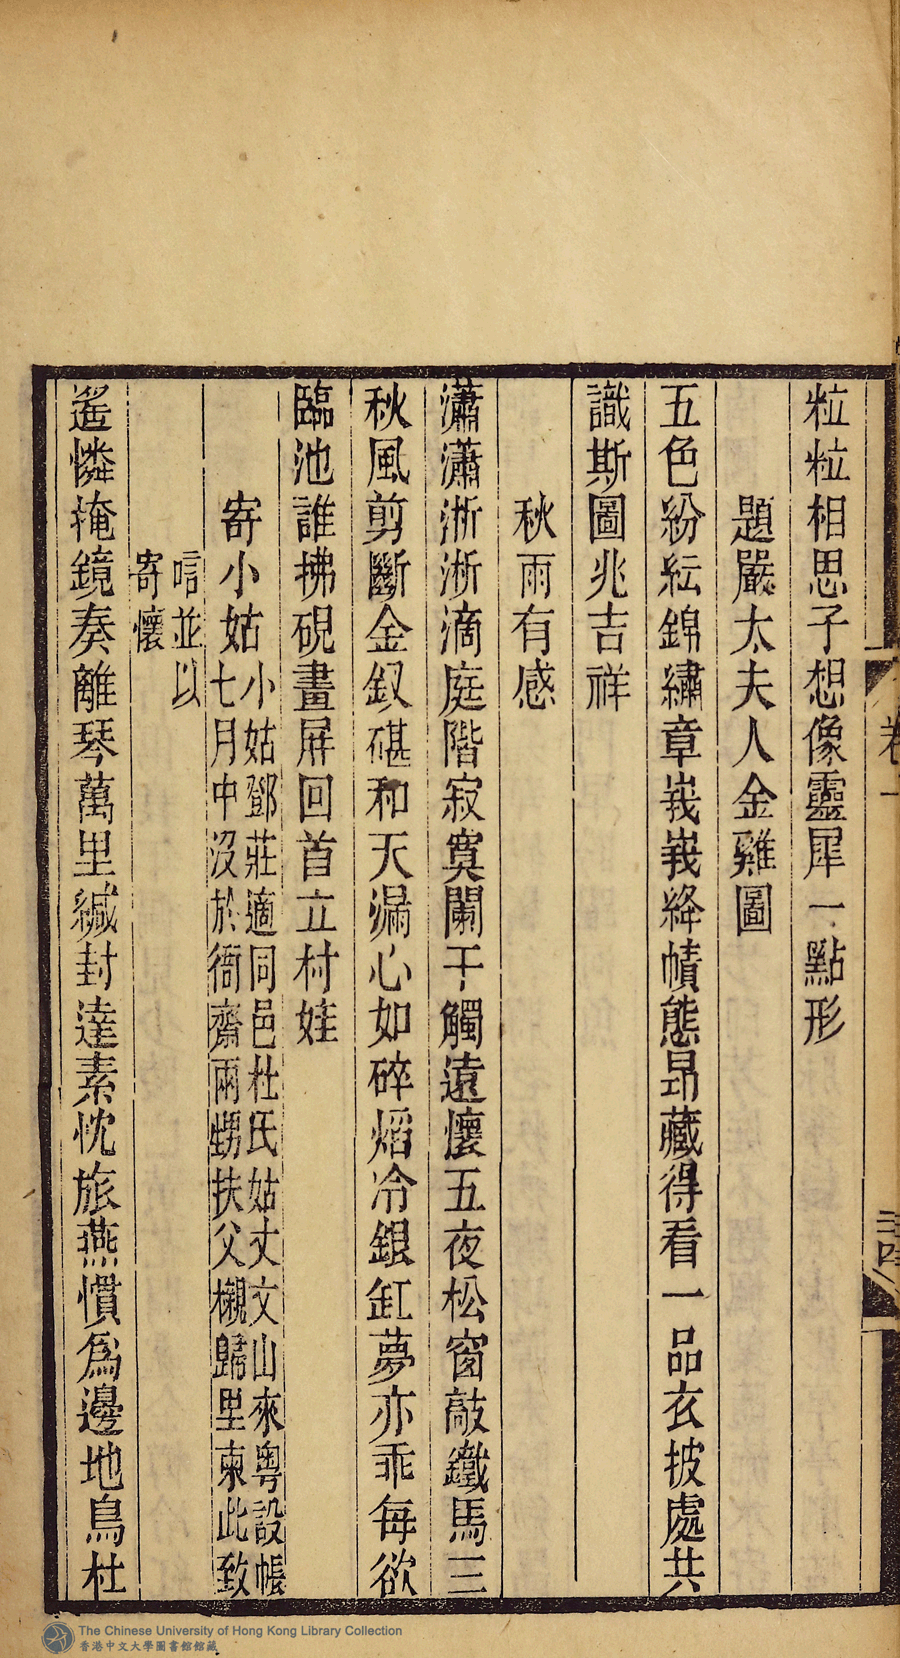 粒粒相思子想像靈犀一點形
題嚴太夫人金雞圖
五色紛紜錦繡章峩峩絳幘態昂藏得看一品衣披處共
識斯圖兆吉祥
秋雨有感
瀟瀟淅淅滴庭階寂寞闌干觸遠懷五夜松窗敲鐵馬三
秋風剪斷金釵碪和天漏心如碎熖冷銀缸夢亦乖每欲
臨池誰拂硯畫屏回首立村娃
寄小姑
小姑鄧莊適同邑杜氏姑丈文山來粵設帳
七月中沒於衙齋兩甥扶父櫬歸里柬此致
唁並以
寄懷
遙憐掩鏡奏離琴萬里緘封達素忱旅燕慣爲邊地鳥杜
卷一
The Chinese University of Hong Kong Library Collection
香港中文大學圖書館館藏